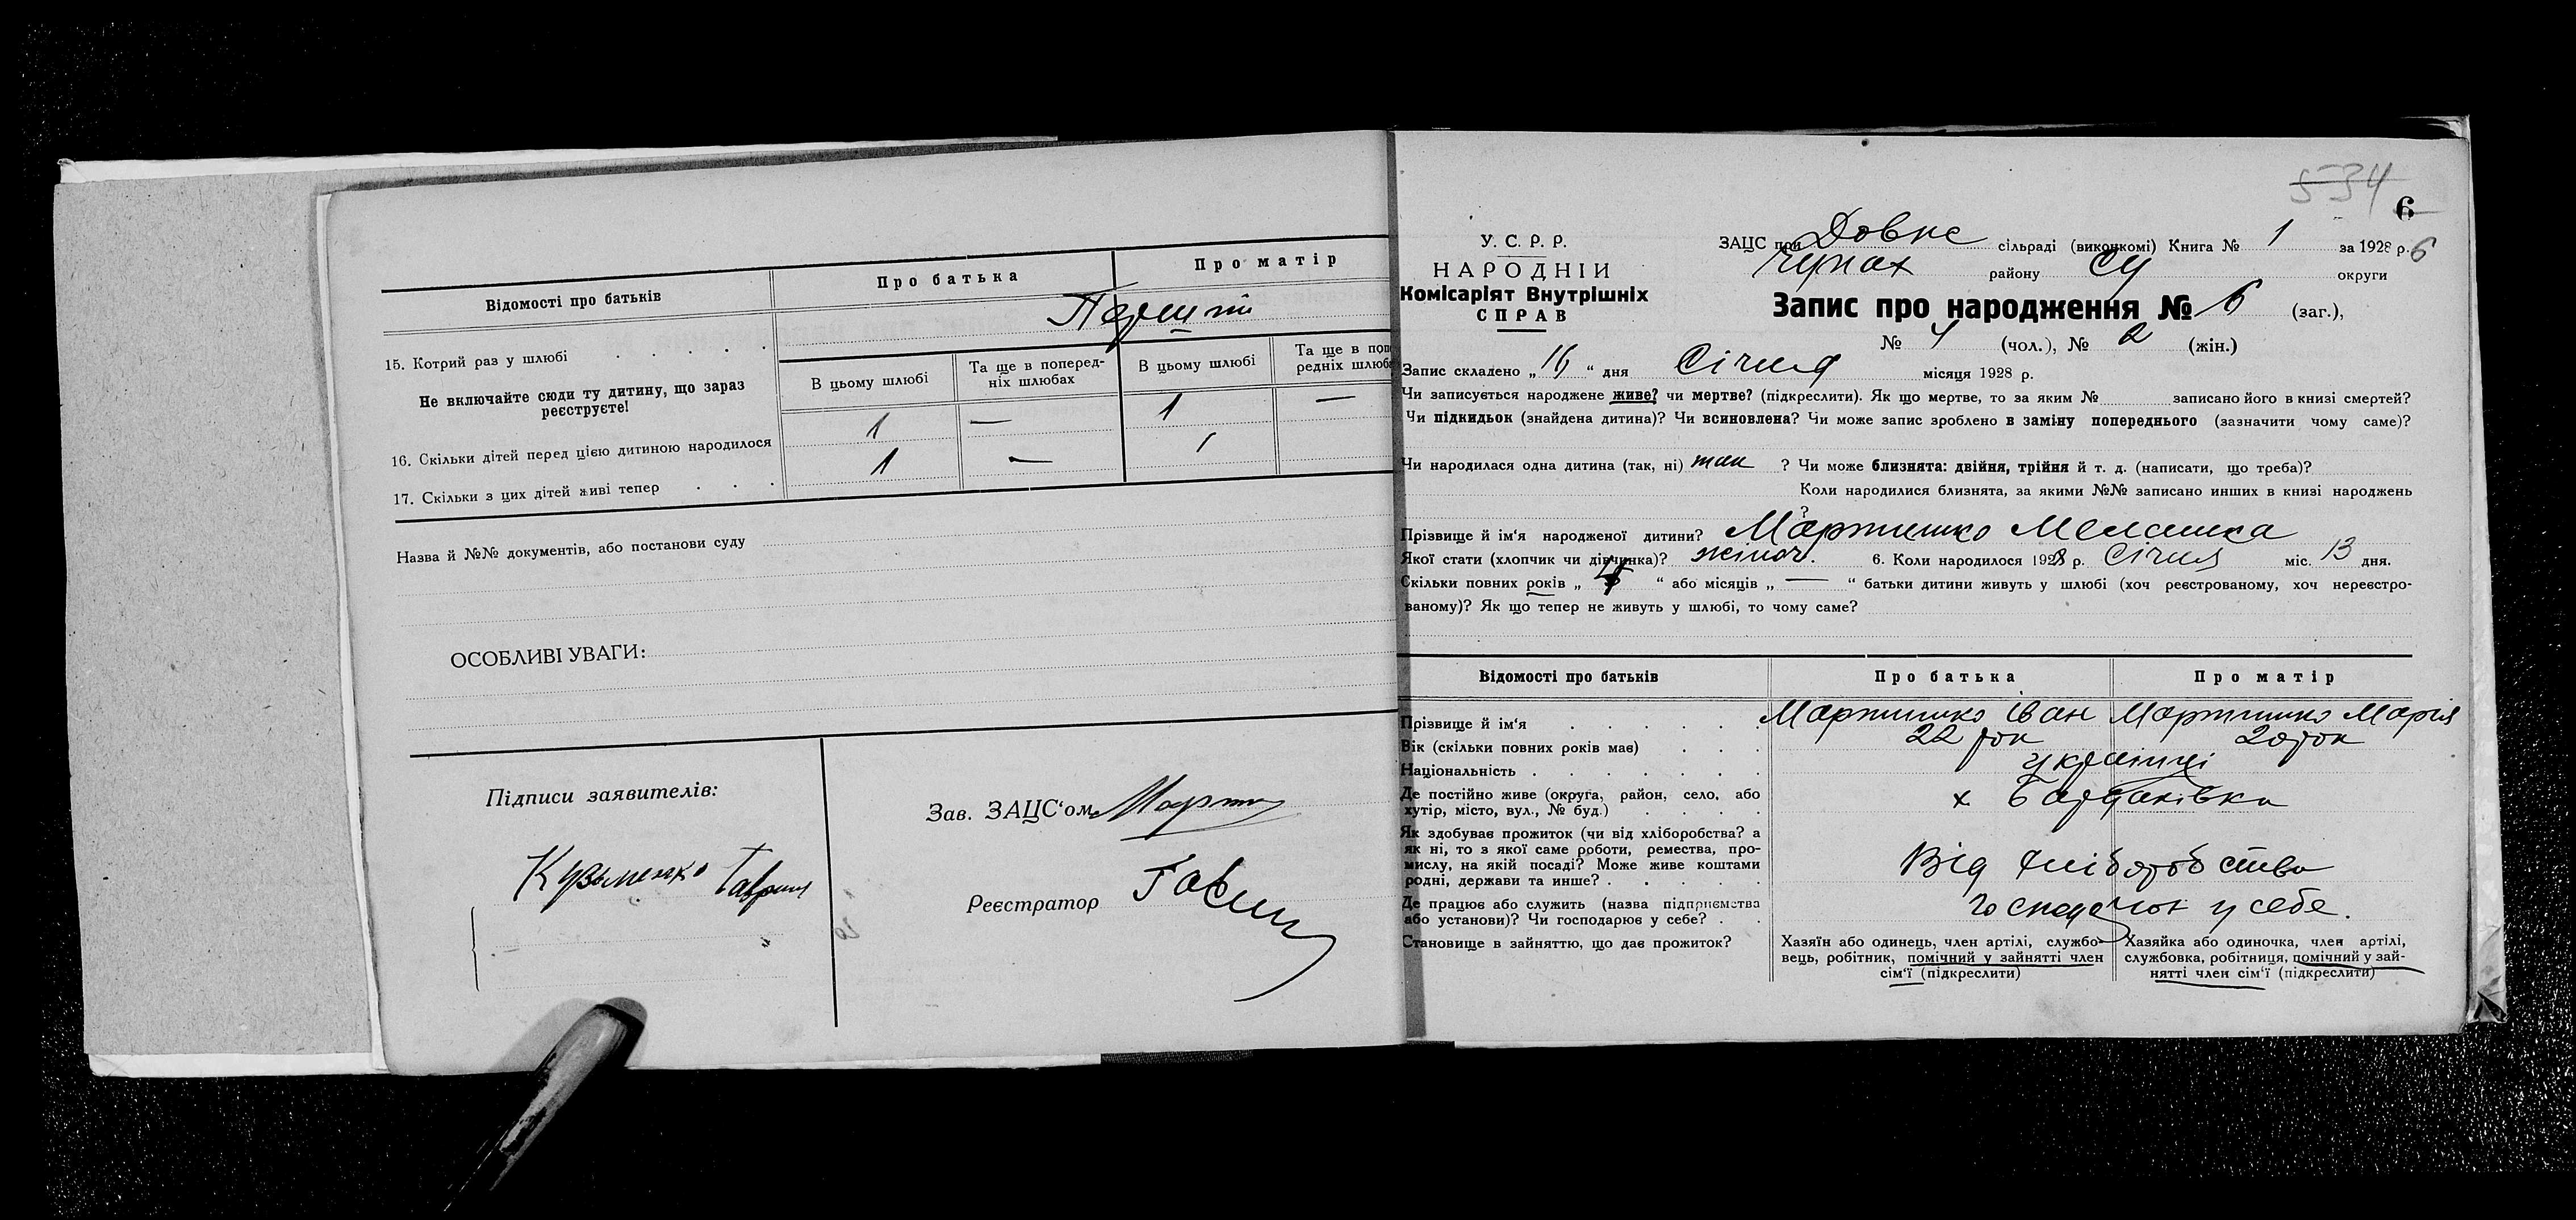 Відомості про батьків
Про батька
Про матір
15. Котрий раз у шлюбі . . . . .
Перший
Не включайте сюди ту дитину, що зараз
реєструєте!
В цьому шлюбі
Та ще в поперед-
ніх шлюбах
В цьому шлюбі
Та ще в поп
редніх шлюба
16. Скільки дітей перед цією дитиною народилося
1 — 1 —
17. Скільки з цих дітей живі тепер . . .
1 — 1
Назва й №№ документів, або постанови суду
ОСОБЛИВІ УВАГИ:
Підписи заявителів:
Кузьменко Гаврил
Зав. ЗАЦС‘ом
Реєстратор
534
6
У. С. Р. Р.
НАРОДНІЙ
Комісаріят Внутрішніх
СПРАВ
ЗАЦС при Довне сільраді (виконкомі) Книга № 1 за 1928 р. 6
Чупах району Су округи
Запис про народження № 6 (заг.),
№ 4 (чол.), № 2 (жін.)
Запис складено „16“ дня Січня місяця 1928 р.
Чи записується народжене живе? чи мертве? (підкреслити). Як що мертве, то за яким № записано його в книзі смертей?
Чи підкидьок (знайдена дитина)? Чи всиновлена? Чи може запис зроблено в заміну попереднього (зазначити чому саме)?
Чи народилася одна дитина (так, ні) так ? Чи може близнята: двійня, трійня й т. д. (написати, що треба)?
Коли народилися близнята, за якими №№ записано инших в книзі народжень
?
Прізвище й ім‘я народженої дитини? Мартишко Мелашка
Якої стати (хлопчик чи дівчинка)? жіноч. 6. Коли народилося 1928 р. Січня міс. 13 дня.
Скільки повних років „ 4 “ або місяців „ — “ батьки дитини живуть у шлюбі (хоч реєстрованому, хоч нереєстро-
ваному)? Як що тепер не живуть у шлюбі, то чому саме?
Відомості про батьків
Про батька
Про матір
Прізвище й ім‘я . . . . . . .
Мартишко Іван
Мартишко Марія
Вік (скільки повних років має) . . .
22 рок
20 рок
Національність . . . . . . .
українці
Де постійно живе (округа, район, село, або
хутір, місто, вул., № буд.) . . . .
х
Як здобуває прожиток (чи від хліборобства? а
як ні, то з якої саме роботи, ремества, про-
мислу, на якій посаді? Може живе коштами
родні, держави та инше? . . . . .
Від хліборобства
Де працює або служить (назва підприємства
або установи)? Чи господарює у себе? . .
у себе.
Становище в зайняттю, що дає прожиток?
Хазяїн або одинець, член артілі, службо-
вець, робітник, помічний у зайнятті член
сім‘ї (підкреслити)
Хазяйка або одиночка, член артілі,
службовка, робітниця, помічний у зай-
нятті член сім‘ї (підкреслити)